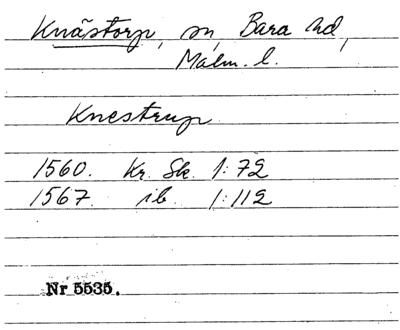 Knästorp, sn, Bara hd,
Malm. l.
Knestrup
1560. Kr. Sk. 1:72
1567. ib. 1:112
Nr 5535.